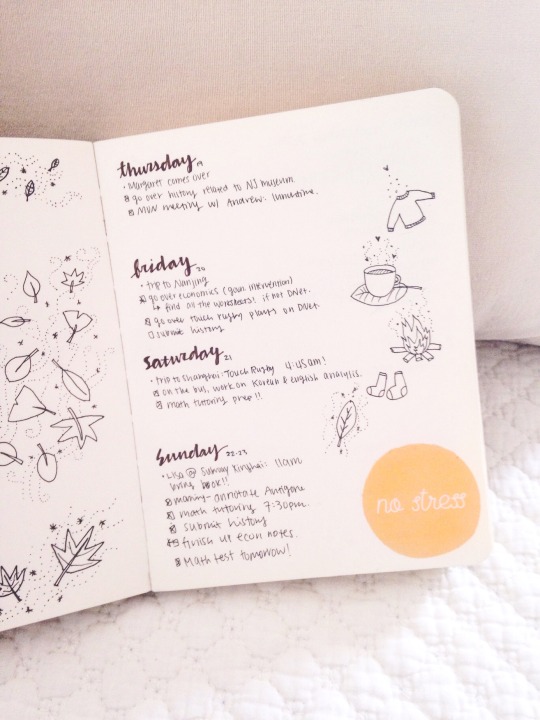 thursday 19
· Margaret comes over
go over history related to NJ museum.
MUN meeting w/ Andrew: lunchtime.
friday 20
· trip to Nanjing
go over economics (govn. intervention)
↳ find all the worksheets!. if not DNet.
go over touch rugby plays on DNet.
submit history
saturday 21
· trip to Shanghai: Touch Rugby 4:45am!
on the bus, work on Korean & english analysis.
math tutoring prep!!
sunday 22-23
· Lisa @ Subway 11am
bring book!!
annotate Antigone
math tutoring 7:30pm.
submit history
finish up econ notes.
Math test tomorrow!
no stress